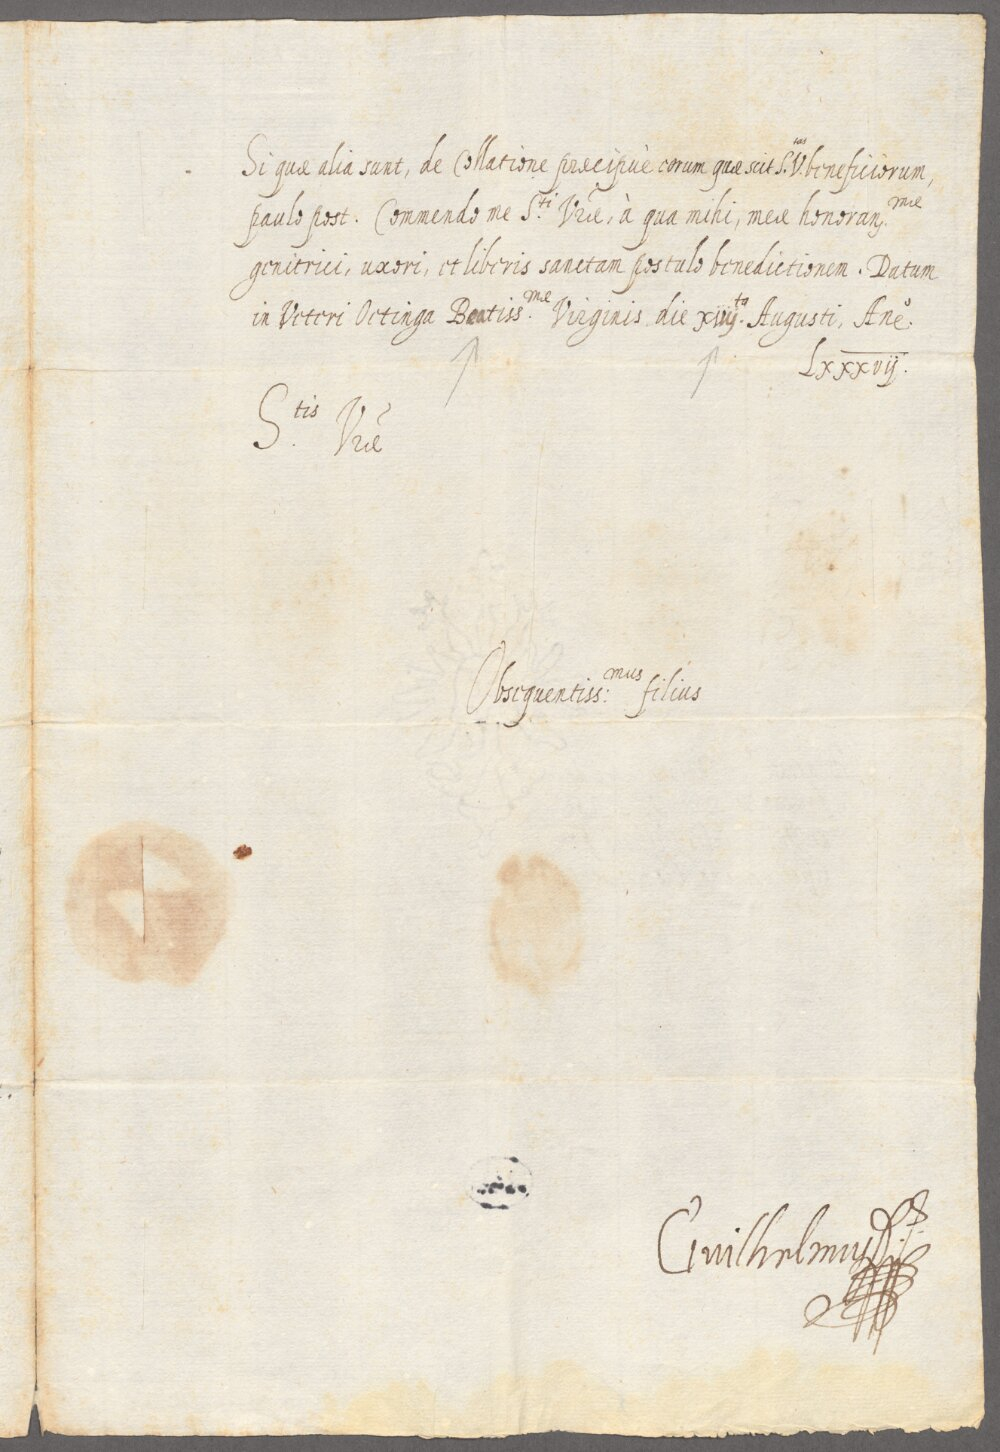 Si quæ alia sunt, de Collatione præcipuè eorum quæ scit S. V.tas beneficiorum,
paulo post. Commendo me S.ti Vræ, à qua mihi, meæ honoran.mæ
genitrici, uxori, et liberis sanctam postulo benedictionem. Datum
in Veteri Oetinga Beatiss.mæ Virginis die xiiij.to Augusti, Anē.
Lxxxvij.
S.tis Vræ
Obsequentiss:mus filius
Guilhelmus